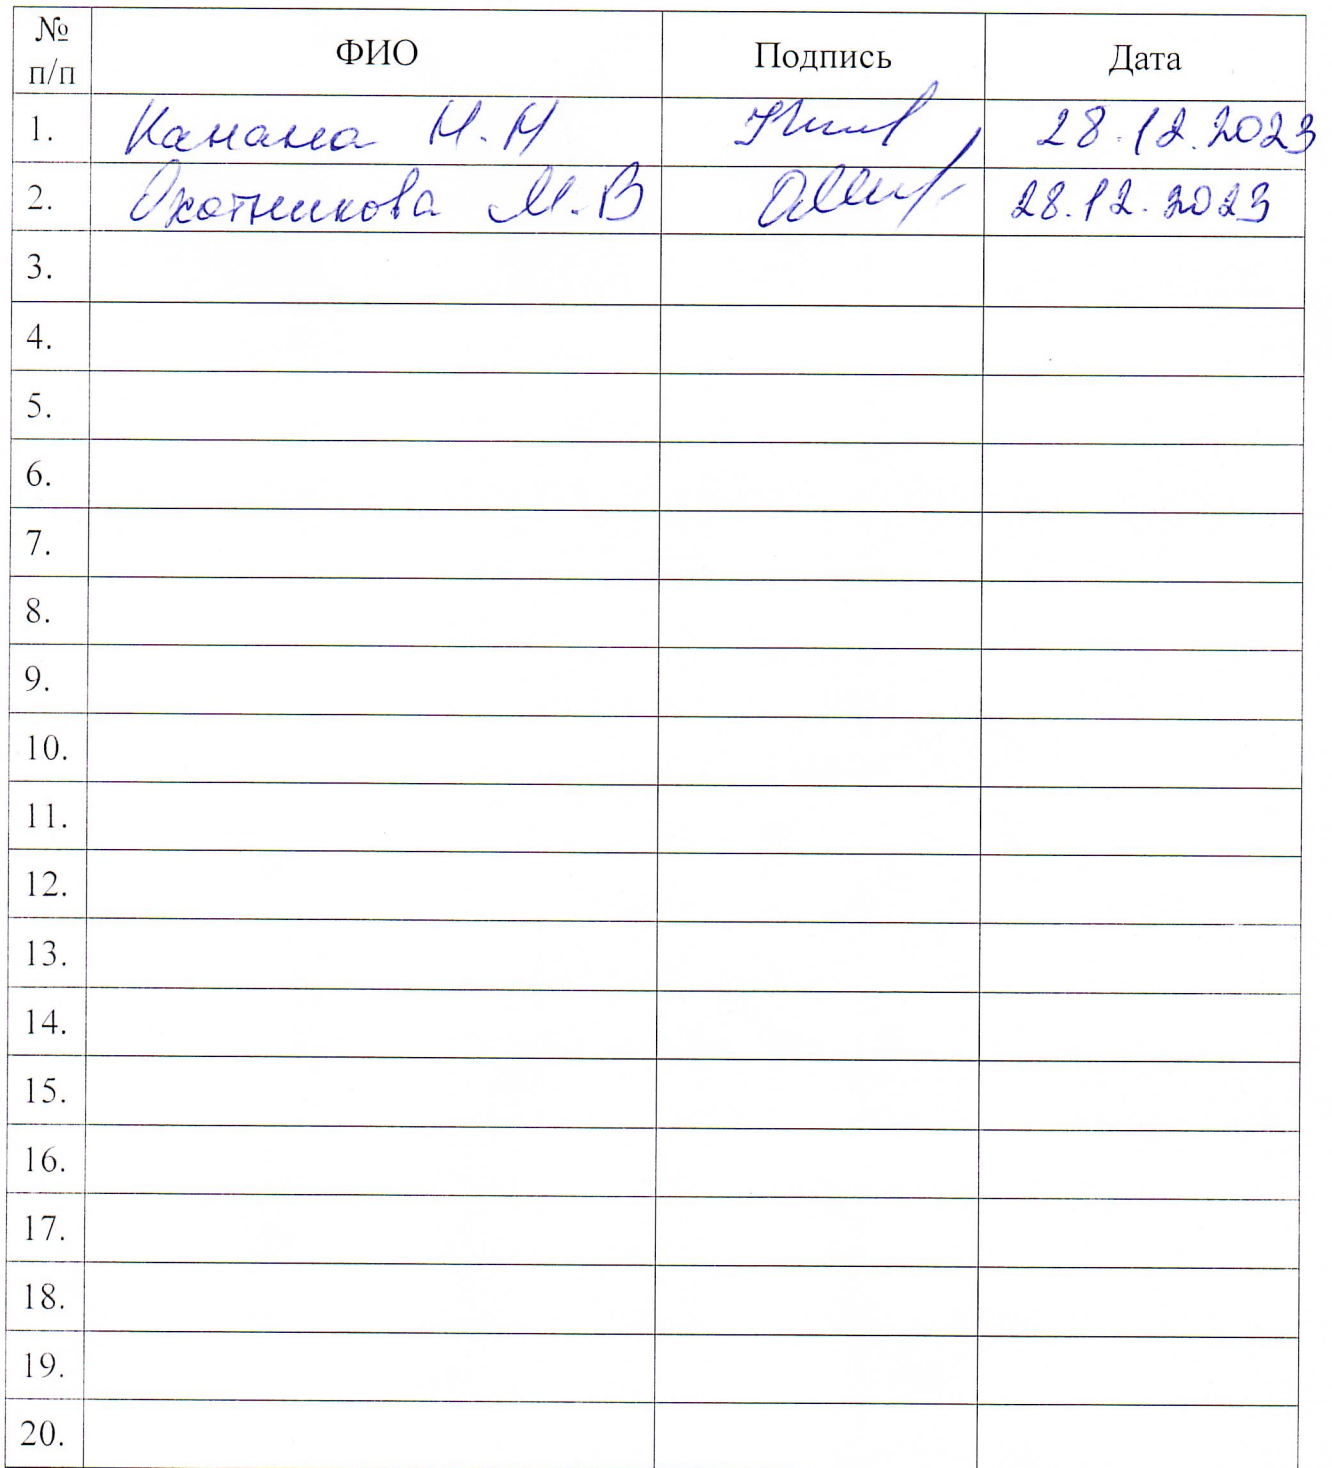 № п/п ФИО Подпись Дата
1. Канана Н.Н 28.12.2023
2. Охотникова М.В 28.12.2023
3.
4.
5.
6.
7.
8.
9.
10.
11.
12.
13.
14.
15.
16.
17.
18.
19.
20.